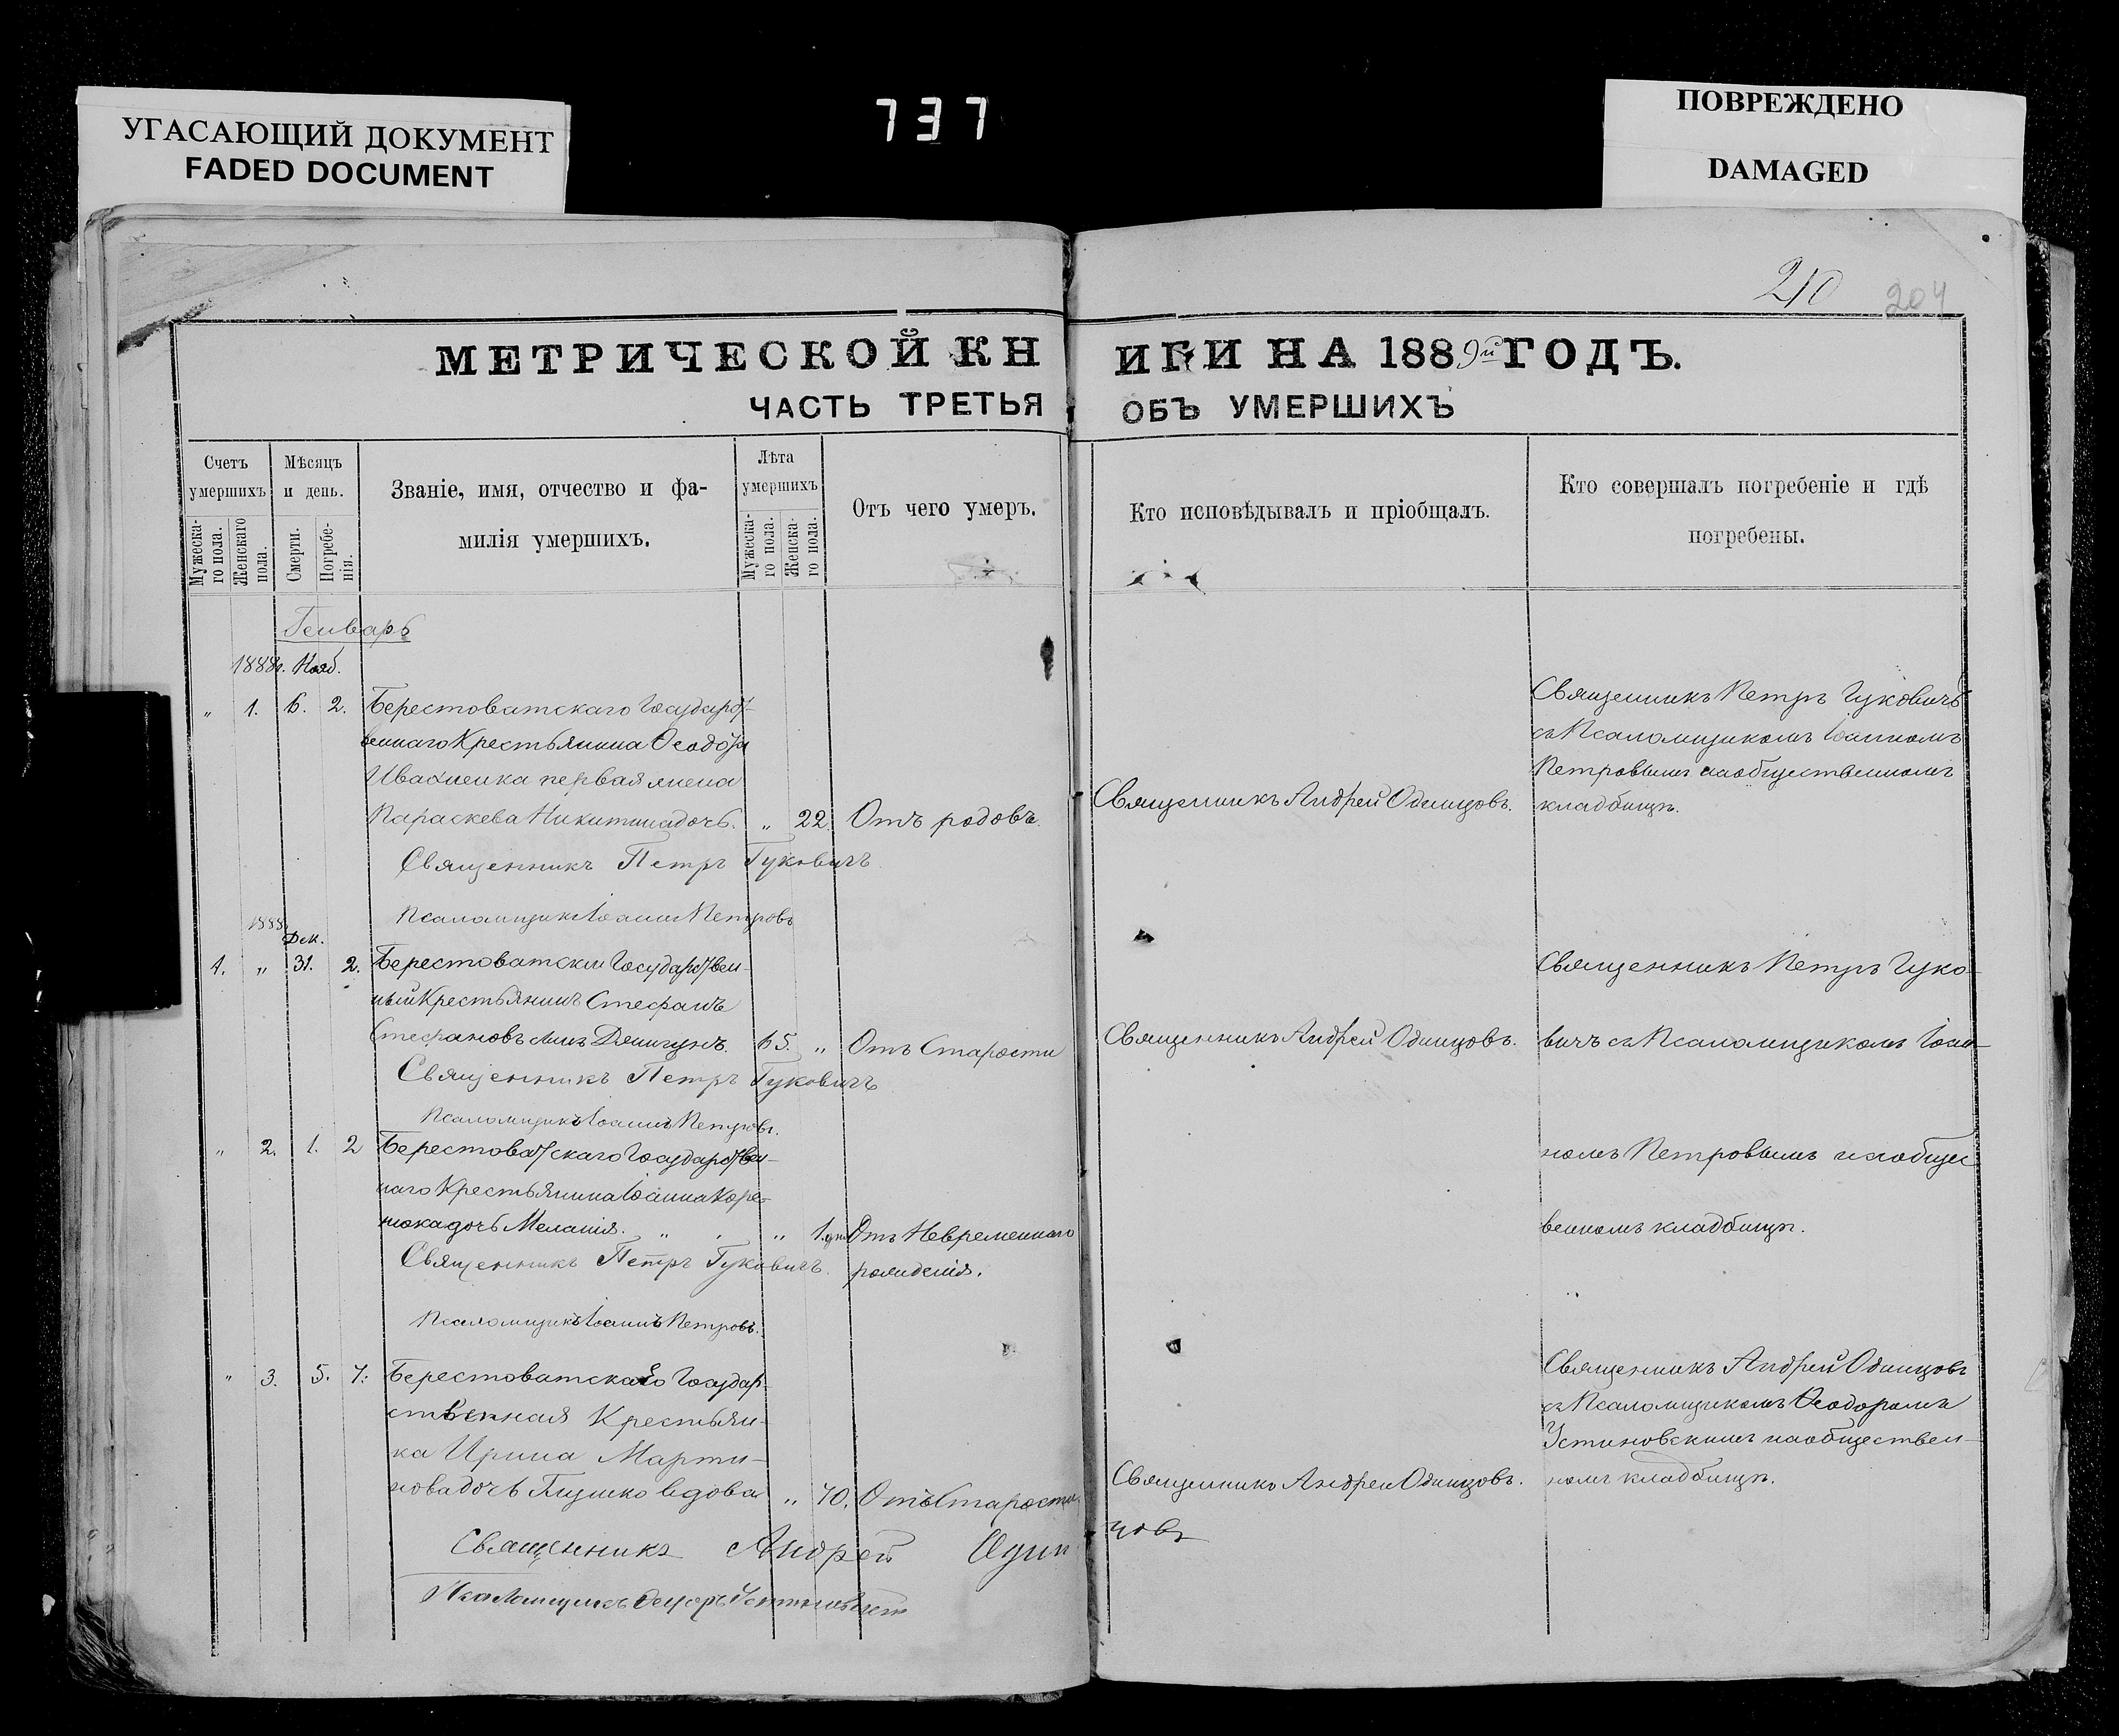 УГАСАЮЩИЙ ДОКУМЕНТ
FADED DOCUMENT
737
ПОВРЕЖДЕНО
DAMAGED
210 204
МЕТРИЧЕСКОЙ КНИГИ НА 1889й ГОДЪ.
ЧАСТЬ ТРЕТЬЯ ОБЪ УМЕРШИХЪ
Счетъ умершихъ
Мужеска-го пола.
Женскаго пола.
Мѣсяцъ и день.
Смерти.
Погребе-нія.
Званіе, имя, отчество и фа-
милія умершихъ.
Лѣта умершихъ
Мужеска-го пола.
Женска-го пола.
Отъ чего умеръ.
Кто исповѣдывалъ и пріобщалъ.
Кто совершалъ погребеніе и гдѣ
погребены.
Генварь
1888г.
„ 1. 2. Берестоватскаго Государст-
веннаго Крестьянина Ѳеодора
Ивахненка первая жена
Параскева Никитина дочь. „ 22. Отъ родовъ.
Священникъ Андрей Одинцовъ.
Священникъ Петръ Гуковичъ
съ Псаломщикомъ Іоанномъ
Петровымъ на общественномъ
кладбищѣ.
Священникъ Петръ Гуковичъ
Псаломщикъ Іоаннъ Петровъ
1888 Дек.
1. „ 31. 2. Берестоватский Государствен-
ный Крестьянинъ Стефанъ
Стефановъ сынъ 65. „ Отъ Старости
Священникъ Андрей Одинцовъ.
Священникъ Петръ Гуко-
вичъ съ Псаломщикомъ Іоан-
Священникъ Петръ Гуковичъ
Псаломщикъ Іоаннъ Петровъ.
„ 2. 1. 2 Берестоватскаго Государствен-
наго Крестьянина Іоанна Коре-
нюка дочь Меланія. „ „ „ 1. дн. Отъ Невременнаго
рожденія.
номъ Петровымъ на общес
венномъ кладбищѣ.
Священникъ Петръ Гуковичъ.
Псаломщикъ Іоаннъ Петровъ.
„ 3. 5. 7. Берестоватская Государ-
ственная Крестьян-
ка Ирина Марти-
нова дочь вдова „ 70. Отъ Старости
Священникъ Андрей Одинцовъ.
Священникъ Андрей Одинцовъ
съ Псаломщикомъ Ѳеодоромъ
Устиновскимъ на обществен-
номъ кладбищѣ.
Священникъ Андрей Одинцовъ
Псаломщикъ